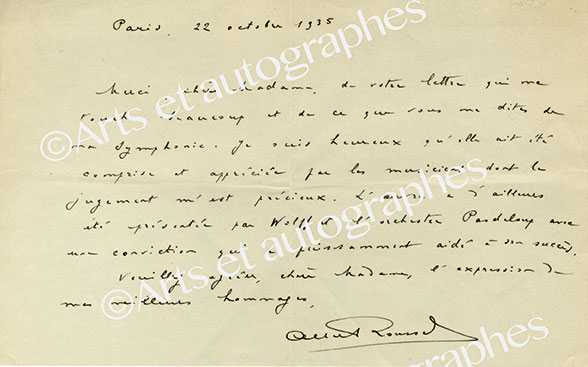 Paris. 22 octobre 1935
Merci chère Madame, de votre lettre qui me
touche beaucoup et de ce que vous me dites de
ma Symphonie. Je suis heureux qu'elle ait été
comprise et appréciée par les musiciens dont le
jugement m'est précieux. L'œuvre a d'ailleurs
été présentée par Wolff et l'orchestre Pasdeloup avec
une conviction qui a puissamment aidé à son succès.
Veuillez agréer, chère Madame, l'expression de
mes meilleurs hommages,
Albert Roussel
©Arts et autographes
©Arts et autographes
©Arts et autographes